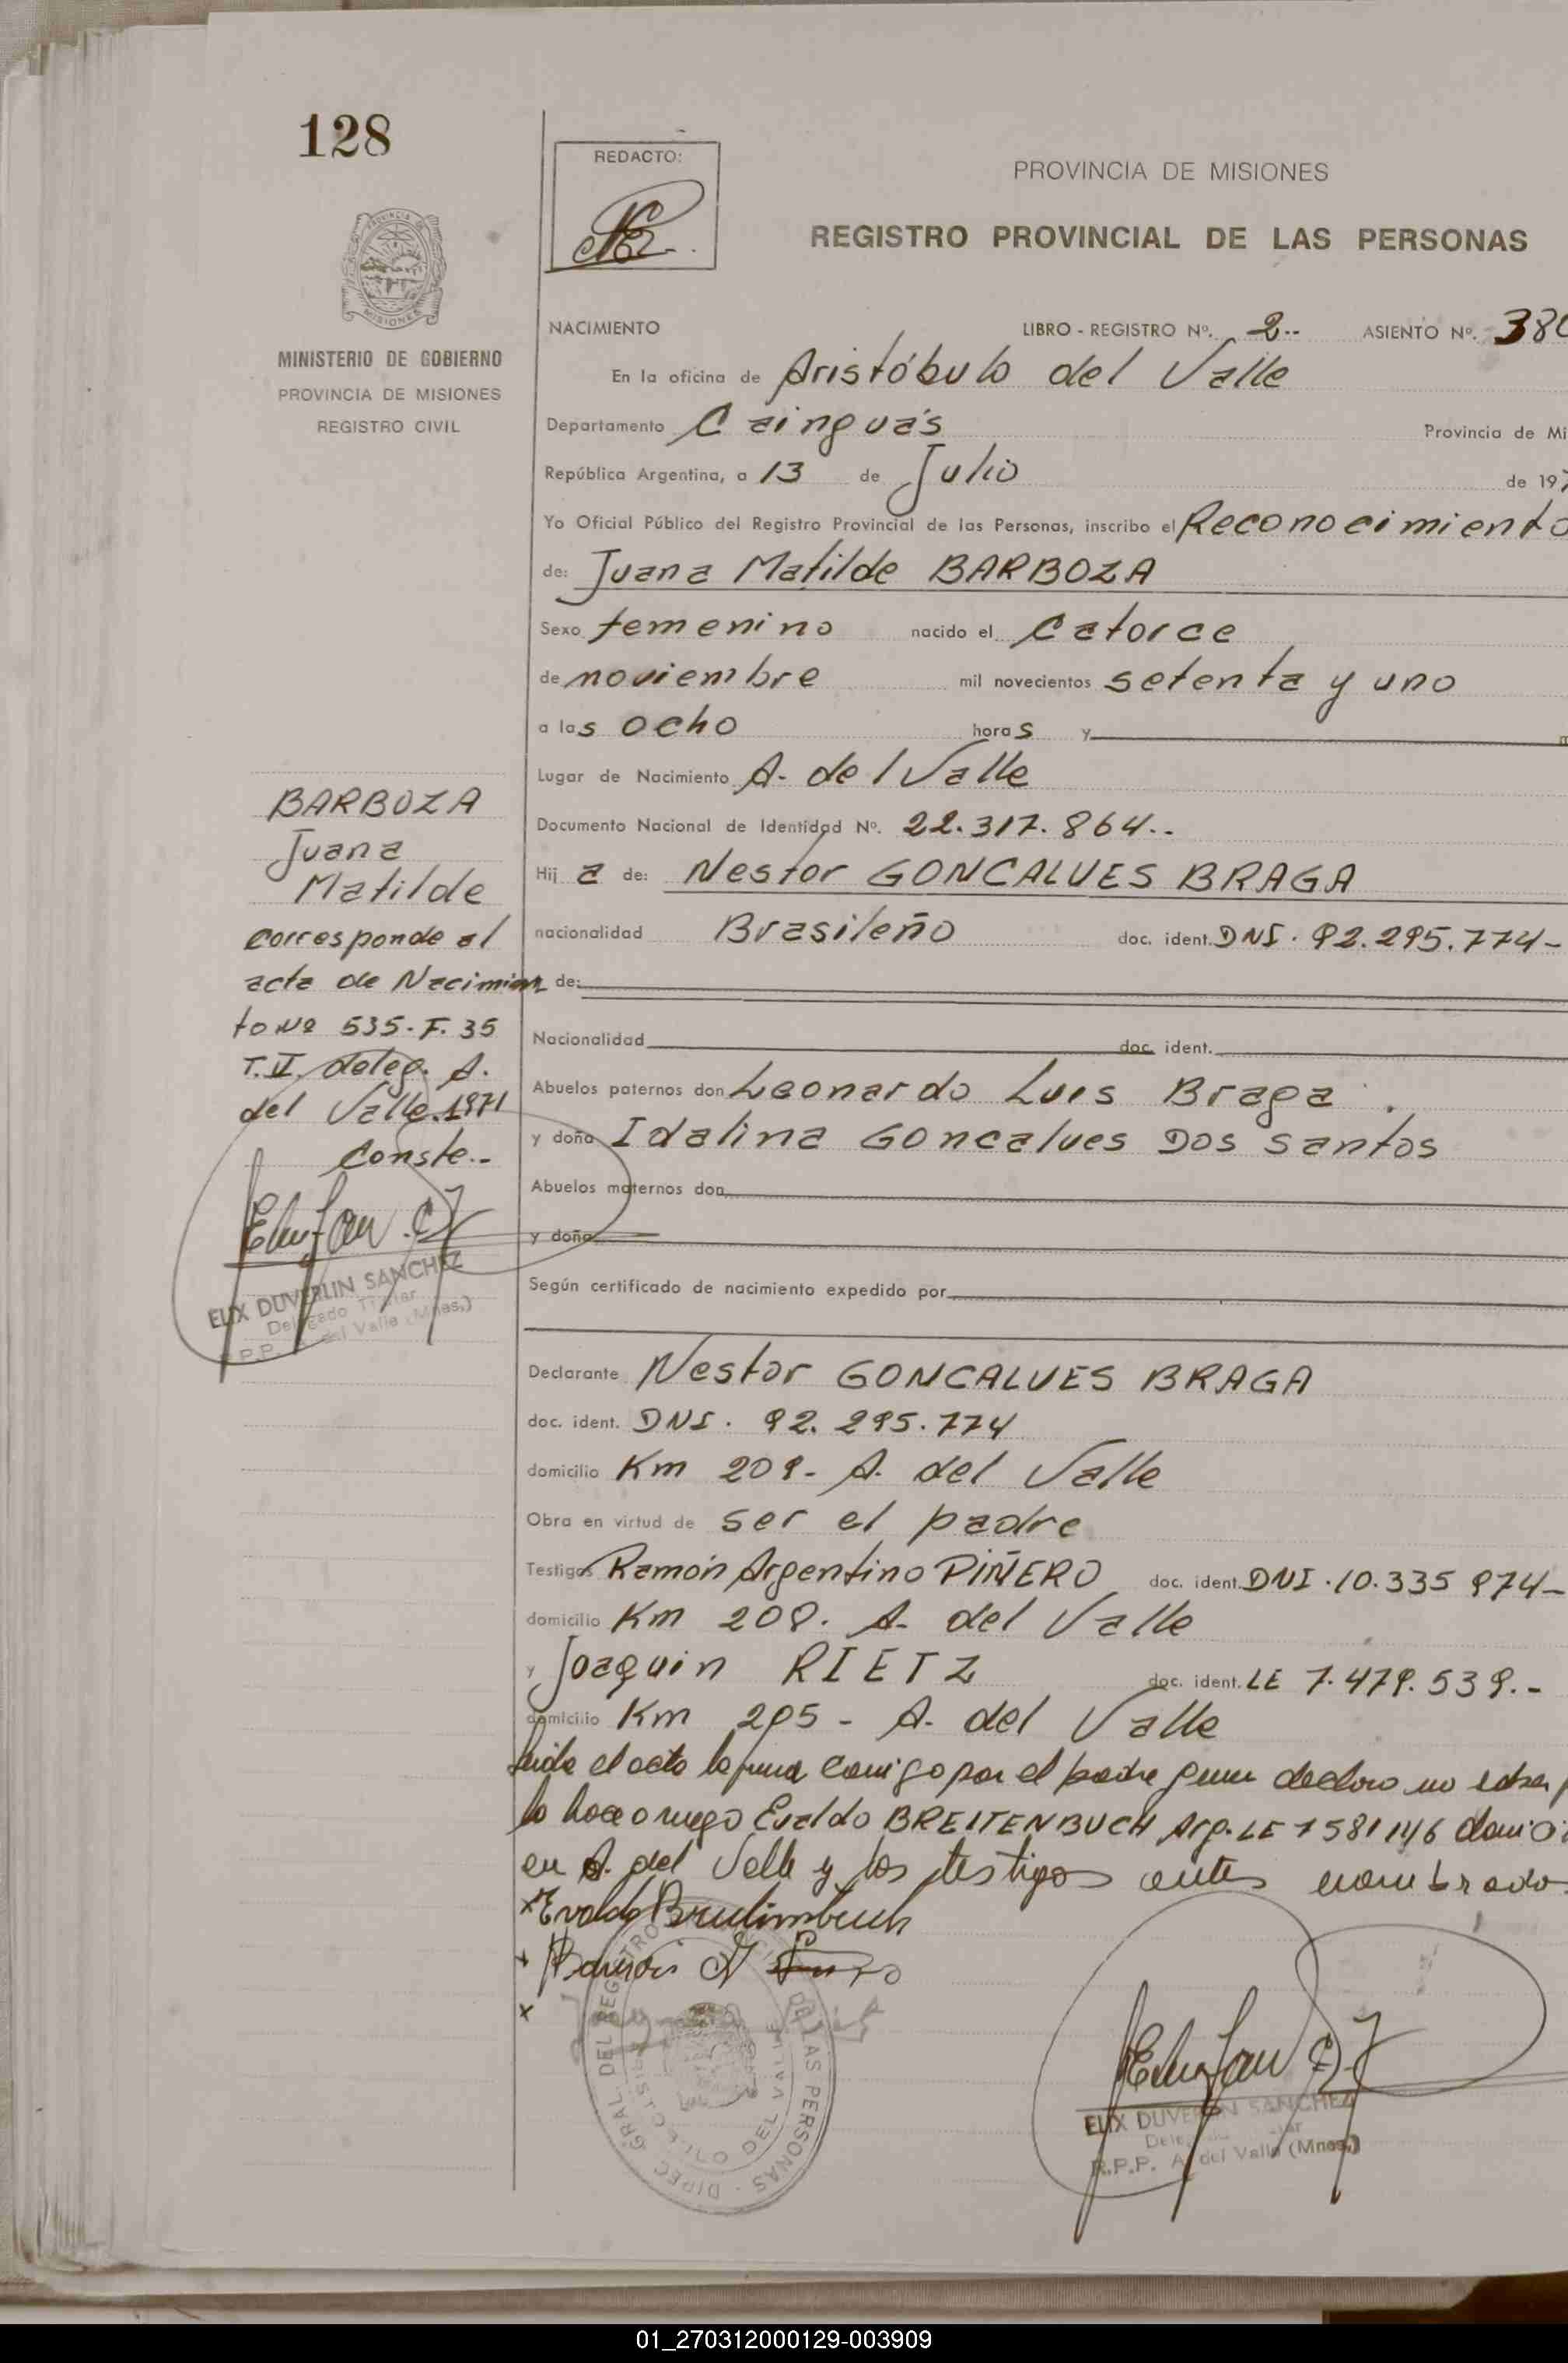 128
REDACTO:
PROVINCIA DE MISIONES
REGISTRO PROVINCIAL DE LAS PERSONAS
MINISTERIO DE GOBIERNO
PROVINCIA DE MISIONES
REGISTRO CIVIL
NACIMIENTO LIBRO - REGISTRO Nº. 2-- ASIENTO Nº. 38
En la oficina de Aristóbulo del Valle
Departamento Cainguás Provincia de Mi
República Argentina, a 13 de Julio de 197
Yo Oficial Público del Registro Provincial de las Personas, inscribo el Reconocimiento
de: Juana Matilde BARBOZA
Sexo femenino nacido el catorce
de noviembre mil novecientos setenta y uno
a las ocho horas y
Lugar de Nacimiento A. del Valle
Documento Nacional de Identidad Nº. 22.317.864..
Hij a de: Nestor GONCALVES BRAGA
nacionalidad Brasileño doc. ident. DNI. 92.295.774-
de:
Nacionalidad doc. ident.
Abuelos paternos don Leonardo Luis Braga.
y doña Idalina Goncalves Dos Santos
Abuelos maternos don
y doña
Según certificado de nacimiento expedido por
BARBOZA
Juana
Matilde
corresponde al
acta de Nacimien
to Nº 535-F.35
T.II. deleg. A.
del Valle.1971
Conste..
ELIX DUVERLIN SANCHEZ
Delegado Titular
R.P.P. A. del Valle (Mnes.)
Declarante Nestor GONCALVES BRAGA
doc. ident. DNI. 92.295.774
domicilio Km 209- A. del Valle
Obra en virtud de ser el padre
Testigos Ramón Argentino PIÑERO doc. ident. DNI.10.335 974-
domicilio Km 208. A. del Valle
y Joaquin RIETZ doc. ident. LE 7.479.539.-
domicilio Km 205- A. del Valle
leida el acta la firma conmigo por el padre quien declaro no saber
lo hace a ruego Evaldo BREITENBUCH Arg. LE 7 581 146 domici
en A. del Valle y los testigos antes nombrado
x Evaldo Breitenbuch
x Ramón A
x
DIREC. GRAL. DEL REGISTRO PROVINCIAL DE LAS PERSONAS
DEL VALLE
ELIX DUVERLIN SANCHEZ
Delegado Titular
R.P.P. A. del Valle (Mnes.)
01_270312000129-003909